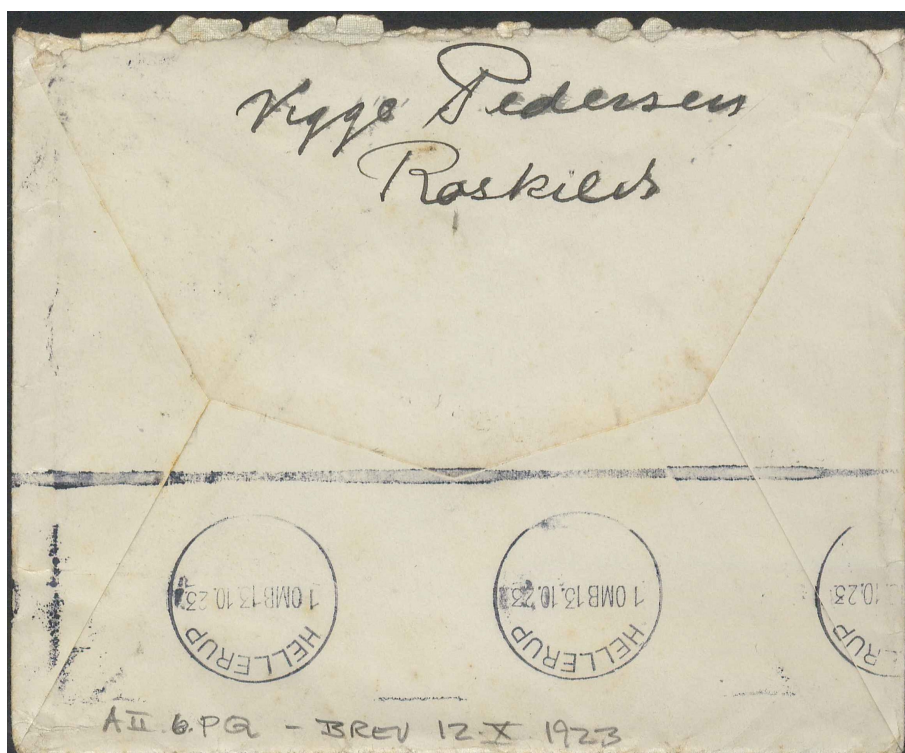 Viggo Pedersen
Roskilde
HELLERUP
1 OMB 13.10.23
HELLERUP
1 OMB 13.10.23
RUP
10.23
A II 6. PQ - BREV 12 X 1923